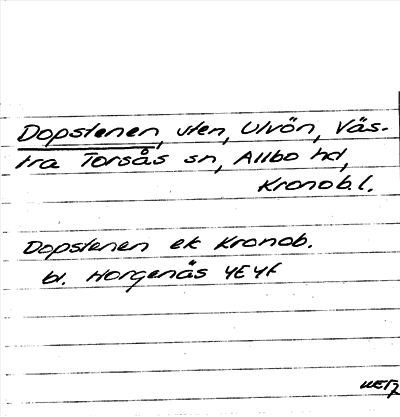 Dopstenen, sten, Utvön, Väs-
tra Torsås sn, Allbo hd,
Kronob.l.
Dopstenen ek Kronob.
bl. Horgenäs 4E4f